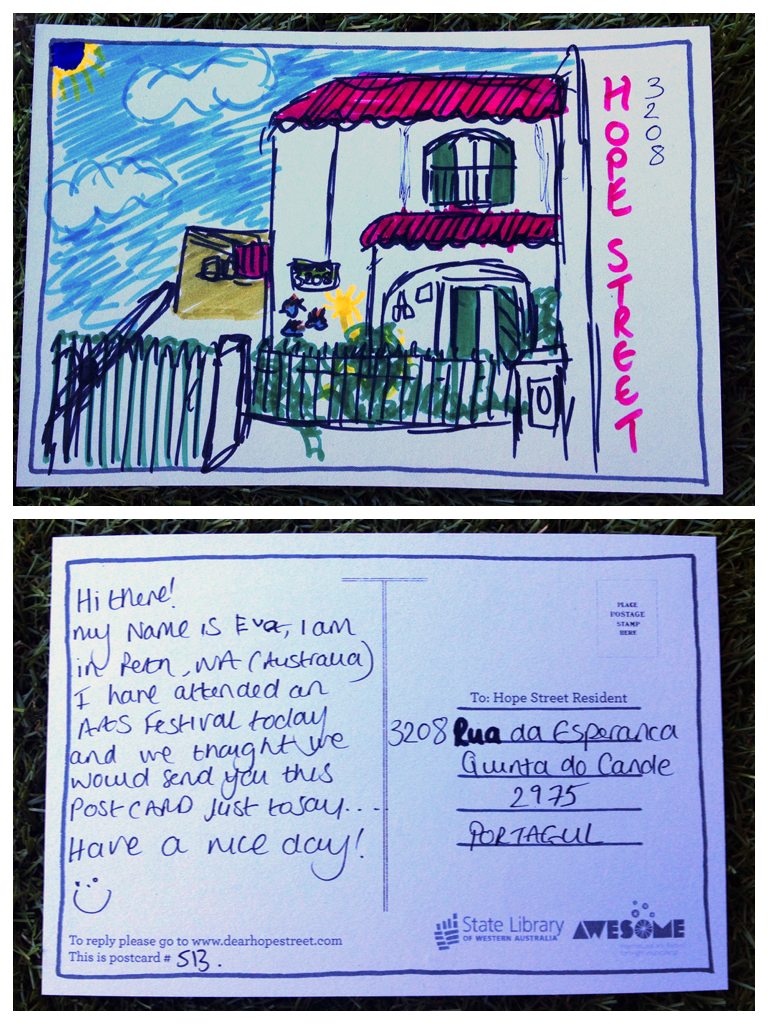 HOPE STREET
3208
3208
Hi there!
my Name is Eva, I am
in Perth, WA (Australia)
I have attended an
Arts Festival today
and we thought we
would send you this
POSTCARD just to say....
Have a nice day!
To reply please go to www.dearhopestreet.com
This is postcard # 513.
PLACE
POSTAGE
STAMP
HERE
To: Hope Street Resident
3208 Rua da Esperanca
Quinta do Conde
2975
PORTAGUL
State Library
OF WESTERN AUSTRALIA
AWESOME